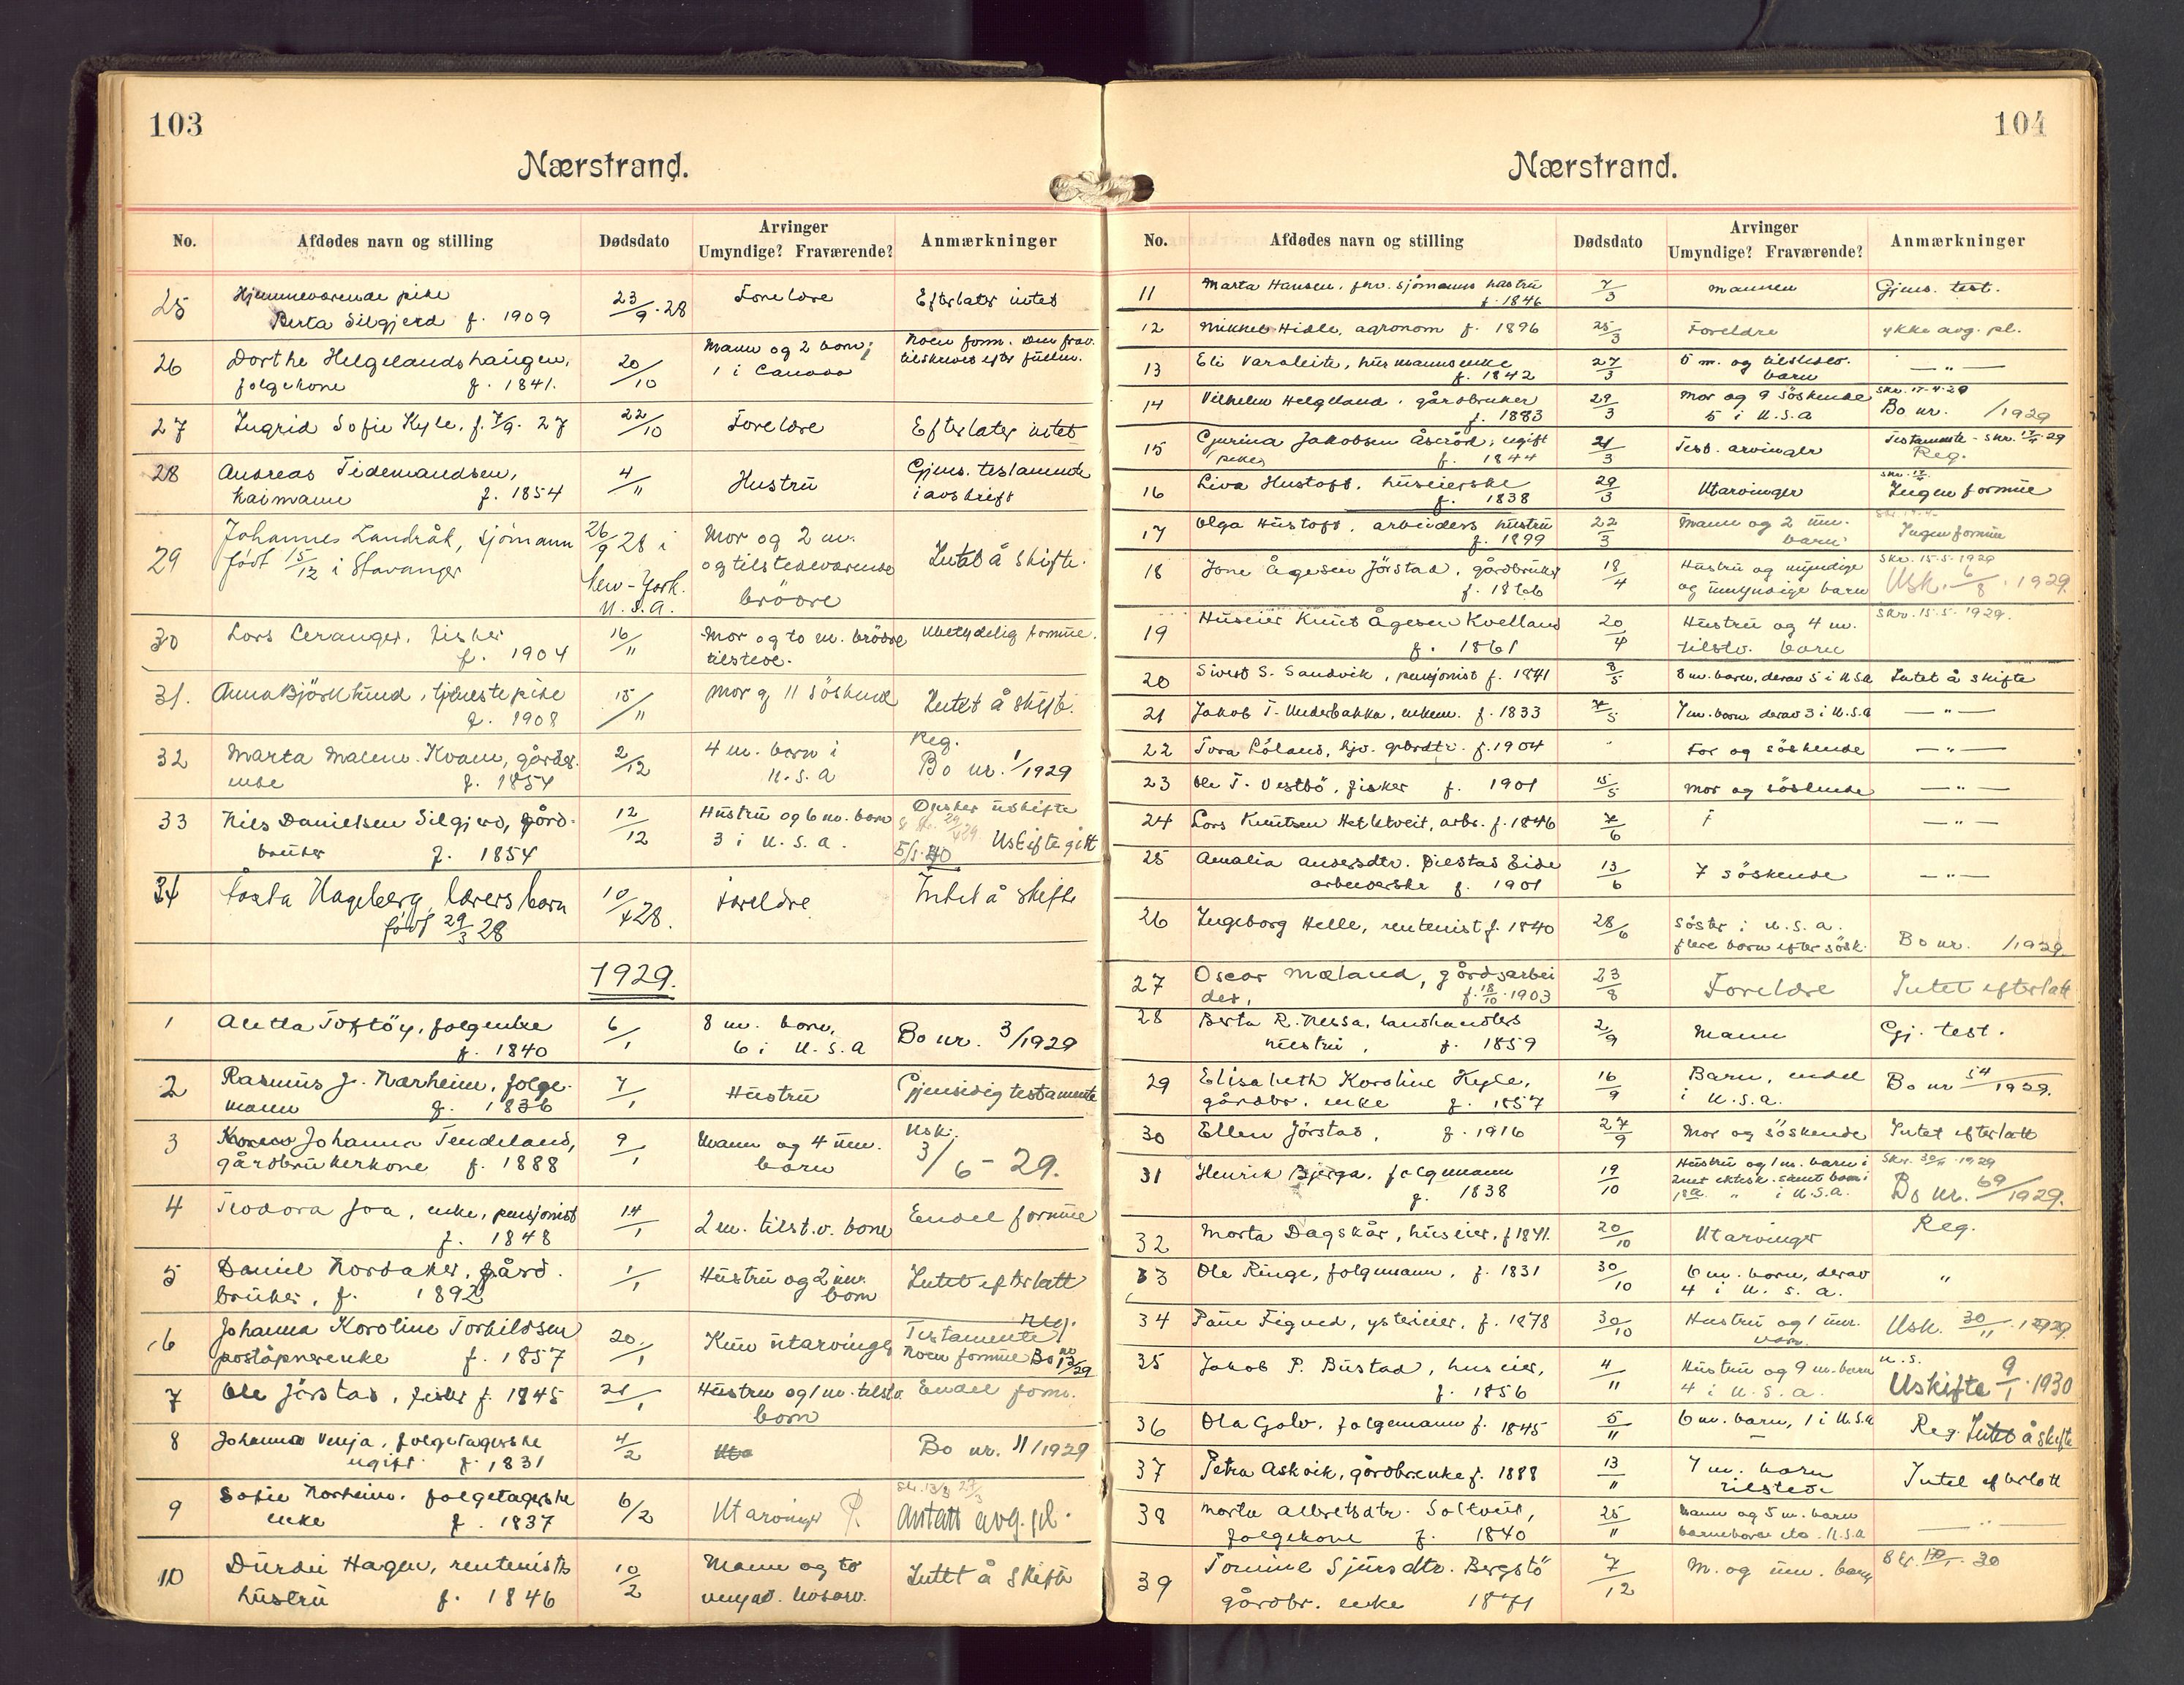 103
Nærstrand.
No. Afdødes navn og stilling Dødsdato Arvinger Umyndige? Fraværende? Anmærkninger
25 Hjemmeværende pike 23/9 .28 Foreldre Efterlater intet
Berta Silgjerd f. 1909
26 Dorthe Helgelandshaugen, 20/10 Mann og 2 born; Noen form.
folgekone f. 1841. 1 i Canada
27 Ingrid Sofie Kyle, f. 7/9. 27 22/10 Foreldre Efterlater intet
28 Andreas Tidemandsen, 4/11 Hustru Gjens. testamente
kaimann f. 1854 i avskrift
29 Johannes Landråk, sjömann 26/9 28 i Mor og 2 m.
født 15/12 i Stavanger New-York. U.S.A. og tilstedeværende brödre Intet å skifte.
30 Lars Leranger, fisker 16/11 Mor og to m. brödre Ubetydelig formue.
f. 1904 tilstede.
31. Anna Björkelund, tjenestepike 15/11 Mor og 11 söskend Intet å skifte.
f. 1908
32 Marta Malene Kvam, gårdbr. 2/12 4 m. born i Reg.
enke f. 1854 U.S.A Bo nr. 1/1929
33 Nils Danielsen Silgjerd, gård- 12/12 Hustru og 6 m. born Önsker uskifte
bruker f. 1854 3 i U.S.A. Uskifte gitt
34 Hageberg, lærers barn 10/4 28. Foreldre Intet å skifte
født 29/3 28
1929.
1 Aletta Toftöy, folgenke 6/1 8 m. born, Bo nr. 3/1929
f. 1840 6 i U.S.A
2 Rasmus J. Nærheim, folge- 7/1 Hustru Gjensidig testamente
mann f. 1836
3 Johanna Tendeland, 9/1 Mann og 4 um. Usk.
gårdbrukerkone f. 1888 born 3/6 - 29.
4 Teodora Joa, enke, pensjonist 14/1 2 m. tilst.v. born Endel formue
f. 1848
5 Daniel Nordaker, gård- 1/1 Hustru og 2 um. Intet efterlatt
bruker, f. 1892 born
6 Johanna Karoline Torkildsen 20/1 Kun utarvinger Testamente Reg.
poståpnerenke f. 1857 Noen formue Bo no 13/29
7 Ole Jörstad, fisker f. 1845 21/1 Hustru og 1 m. tilstv. Endel form.
born
8 Johanna Venja, folgetagerske 4/2 Uta Bo nr. 11/1929
ugift f. 1831
9 Sofie Norheim, folgetagerske 6/2 Utarvinger Skr. 13/3 27/3
enke f. 1837 Antatt avg. pl.
10 Durdei Hagen, rentenists 10/2 Mann og to Intet å skifte
hustru f. 1846
104
Nærstrand.
No. Afdødes navn og stilling Dødsdato Arvinger Umyndige? Fraværende? Anmærkninger
11 Marta Hansen, fhv. sjömanns hustru 7/3 Mannen Gjens. test.
f. 1846
12 Mikkel Hidle, agronom f. 1896 25/3 Foreldre ykke avg. pl.
13 Eli Varaleite, husmannsenke 27/3 5 m. og tilstedev. — " —
f. 1842 barn
14 Vilhelm Helgeland, gårdbruker 29/3 Mor og 9 söskende Skr. 17-4-29
f. 1883 5 i U.S.A Bo nr. /1929
15 Gjurina Jakobsen Åseröd, ugift 21/3 Test. arvinger Testamente - skr. 17/4 29
pike f. 1844 Reg.
16 Liva Hustoft, huseierske 29/3 Utarvinger Skr. 17/4
f. 1838 Ingen formue
17 Olga Hustoft, arbeiders hustru 22/3 Mann og 2 um. Skr. 17-4-
f. 1899 barn Ingen formue
18 Jone Ågesen Jörstad, gårdbruker 18/4 Hustru og myndige Skr. 15-5-1929
f. 1866 og umyndige barn Usk. 6/8. 1929
19 Huseier Knut Ågesen Kvelland 20/4 Hustru og 4 m. Skr. 15-5-1929.
f. 1861 tilstv. barn
20 Sivert S. Sandvik, pensjonist f. 1841 3/5 8 m. barn, derav 5 i USA Intet å skifte
21 Jakob T. Underbakka, enkem. f. 1833 4/5 7 m. barn derav 3 i U.S.A — " —
22 Tora Löland, hjv. gbrdtr. f. 1904 Far og söskende — " —
23 Ole T. Vestbö, fisker f. 1901 15/5 Mor og söskende — " —
24 Lars Knutsen Hetletveit, arb. f. 1846 7/6 — " —
25 Amalia Andersdtr. Eide 13/6 7 söskende — " —
arbeiderske f. 1901
26 Ingeborg Helle, rentenist f. 1840 28/6 Söster i U.S.A.
flere barn efter sösk. Bo nr. /1929
27 Oscar Mæland, gårdsarbei 23/8 Foreldre Intet efterlatt
der, f. 18/10 1903
28 Berta R. Nessa, landhandlers 2/9 Mann Gj. test.
hustru, f. 1859
29 Elisabeth Karoline Kyle, 16/9 Barn, endel Bo nr 54/1929.
gårdbr. enke f. 1857 i U.S.A.
30 Ellen Jörstad, f. 1916 27/9 Mor og söskende Intet efterlatt
31 Henrik Bjerga, folgemann 19/10 Hustru og 1 m. barn i Skr. 30/11 1929
f. 1838 i U.S.A. Bo nr. 69/1929.
32 Marta Dagskår, huseier, f 1841. 20/10 Utarvinger Reg.
33 Ole Ringe, folgemann, f. 1831 30/10 6 m. barn, derav "
4 i U.S.A.
34 Paul Tigved, ysteieier, f. 1878 30/10 Hustru og 1 um. Usk. 30/11. 1929.
barn.
35 Jakob P. Bustad, huseier, 4/11 Hustru og 9 m. barn u.s.
f. 1856 4 i U.S.A. Uskifte 9/1. 1930
36 Ola Galv, folgemann f. 1845 5/11 6 m. barn, 1 i U.S.A Reg. Intet å skifte
37 Petra Askvik, gårdbrenke f. 1888 13/11 7 m. barn Intet efterlatt
tilstede
38 Marta Albretsdtr. Soltveit, 25/11 Mann og 5 m. barn — " —
folgekone f. 1840 barnebarn U.S.A
39 Tomine Sjursdtr. Bergstö 7/12 M. og um. barn
gårdbr. enke 1871